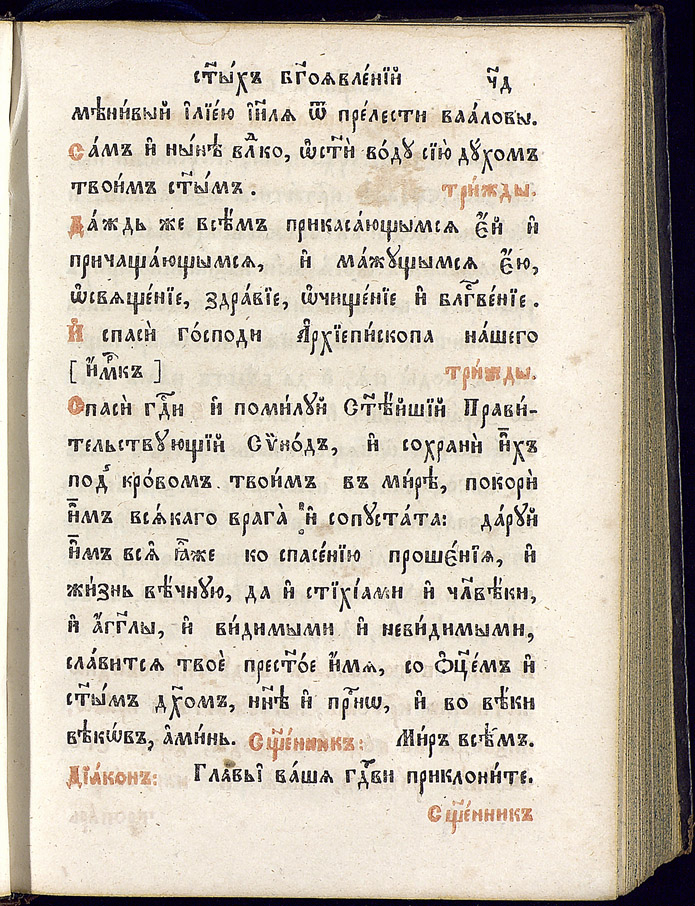 ст҃ы́хъ бг҃оѧвле́нїй ч҃д
мѣни́вый і҆лїе́ю і҆и҃лѧ ѿ пре́лести ваа́ловы.
Са́мъ и҆ ны́нѣ влⷣко, ѡ҆ст҃ѝ во́дꙋ сїю̀ дꙋ́хомъ
твои́мъ ст҃ы́мъ: три́жды.
Да́ждь же всѣ̑мъ прикаса́ющымсѧ є҆́й и҆
причаща́ющымсѧ, и҆ ма́жꙋщымсѧ є҆́ю,
ѡ҆свѧще́нїе, здра́вїе, ѡ҆чище́нїе и҆ блгⷭ҇ве́нїе.
И҆ спасѝ го́споди А҆рхїепі́скопа на́шего
[ и҆́мⷬ҇къ ] три́жды.
Спасѝ гдⷭ҇и и҆ поми́лꙋй Ст҃ѣ́йшїй Прави́-
тельствꙋющїй Сѵно́дъ, и҆ сохранѝ и҆̀хъ
подⸯ кро́вомъ твои́мъ въ ми́рѣ, покорѝ
и҆̀мъ всѧ́каго врага̀ и҆ сопꙋста́та: да́рꙋй
и҆̀мъ всѧ̑ ꙗ҆̀же ко спасе́нїю проше́нїѧ, и҆
жи́знь вѣ́чнꙋю, да и҆ стїхі́ами и҆ чл҃вѣ́ки,
и҆ а҆́гг҃лы, и҆ ви́димыми и҆ неви́димыми,
сла́витсѧ твоѐ прест҃о́е и҆́мѧ, со ѻ҆ц҃е́мъ и҆
ст҃ы́мъ дх҃омъ, нн҃ѣ и҆ прⷭ҇нѡ, и҆ во вѣ́ки
вѣкѡ́въ, а҆ми́нь. Сщ҃е́нникъ: Ми́ръ всѣ̑мъ.
Дїа́конъ: Главы̀ ва́шѧ гдⷭ҇ви приклони́те.
Сщ҃е́нникъ